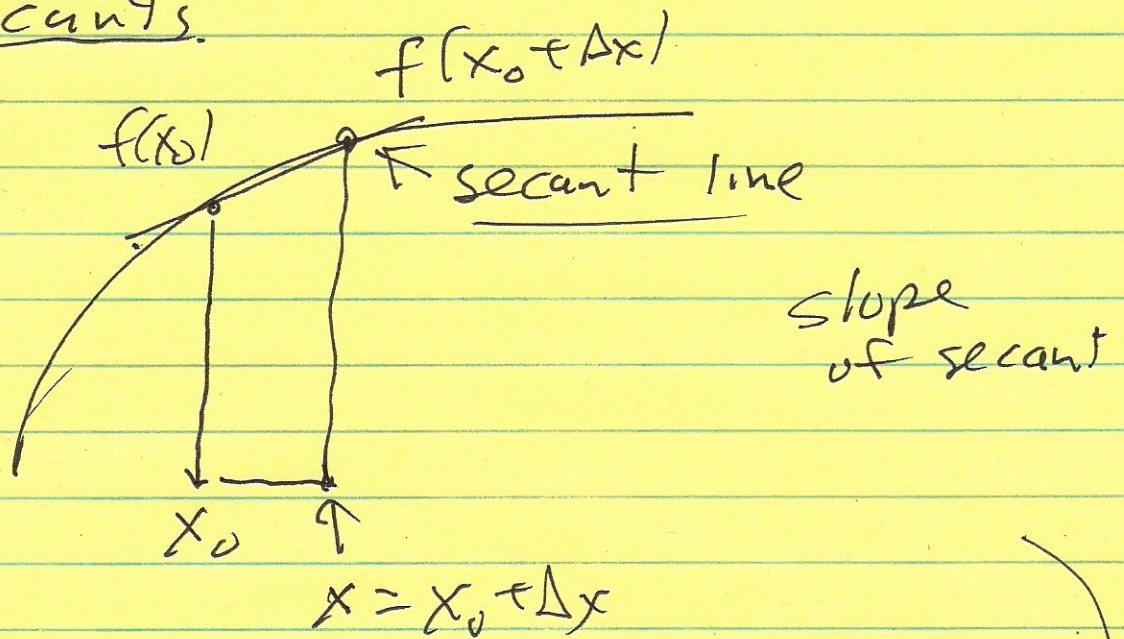 cants.
f(x₀+Δx)
f(x₀)
secant line
slope
of secant
x₀
x = x₀+Δx